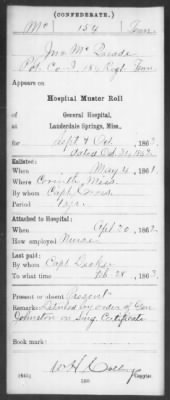 (CONFEDERATE.)
Mc 154 Tenn.
Jno Mc Quade
Pvt. Co. I, 154 Regt. Tenn.
Appears on
Hospital Muster Roll
of General Hospital,
Lauderdale Springs, Miss.,
for Sept & Oct, 1862.
dated Oct 31, 1862.
Enlisted:
When May 1, 1861.
Where Corinth, Miss.
By whom Capt.
Period
Attached to Hospital:
When Apl. 20, 1862.
How employed Nurse
Last paid:
By whom Capt
To what time Feb. 28, 1862.
Present or absent Present
Remarks: Detained by order of Gen
Johnston on Surg. Certificate
Book mark:
W H
Copyist.